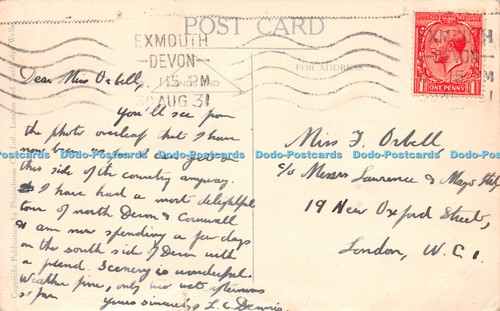 POST CARD
EXMOUTH
DEVON
1 15 PM
AUG 31
FOR ADDRESS
ONE PENNY
Dear Miss Orbell,
You'll see from
the photo overleaf that I have
now been
this side of the country anyway.
I have had a most delightful
tour of north Devon & Cornwall
& am now spending a few days
on the south side of Devon with
a friend. Scenery is wonderful
Weather fine, only two wet afternoons
so far.
Yours sincerely L.C. Dennis.
Miss F. Orbell,
c/o Messrs Lawrence & Mayo Ltd,
19 New Oxford Street,
London, W.C.1.
Dodo-Postcards Dodo-Postcards Dodo-Postcards Dodo-Postcards Dodo-Postcards